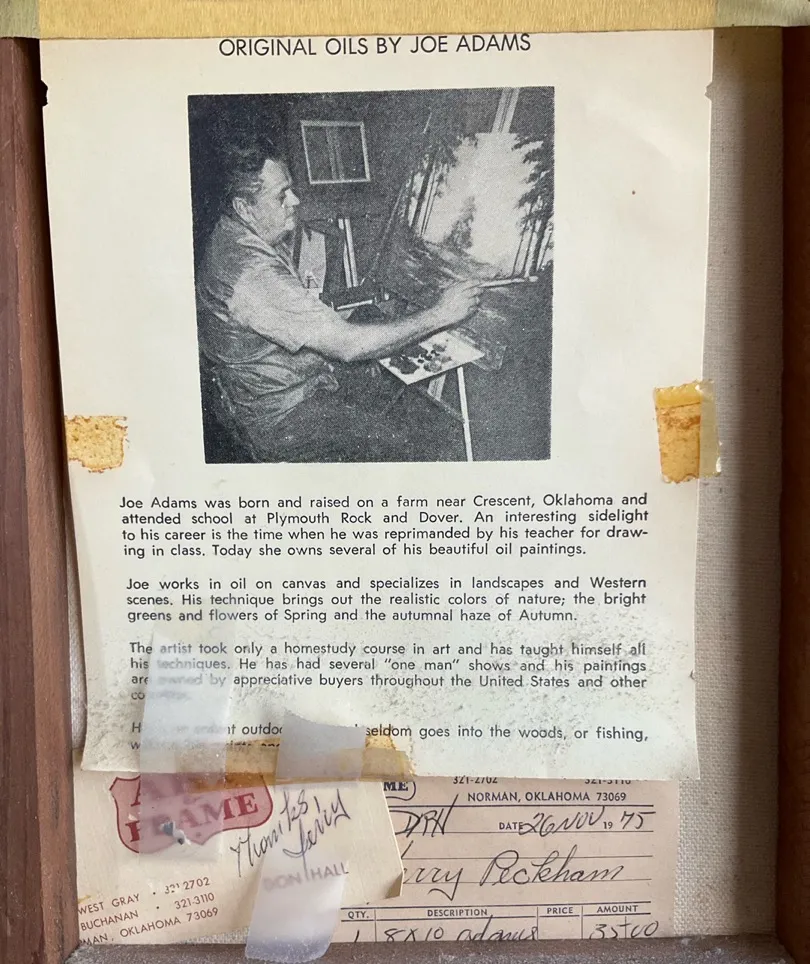 ORIGINAL OILS BY JOE ADAMS
Joe Adams was born and raised on a farm near Crescent, Oklahoma and
attended school at Plymouth Rock and Dover. An interesting sidelight
to his career is the time when he was reprimanded by his teacher for draw-
ing in class. Today she owns several of his beautiful oil paintings.
Joe works in oil on canvas and specializes in landscapes and Western
scenes. His technique brings out the realistic colors of nature; the bright
greens and flowers of Spring and the autumnal haze of Autumn.
The artist took only a homestudy course in art and has taught himself all
his techniques. He has had several "one man" shows and his paintings
are owned by appreciative buyers throughout the United States and other
seldom goes into the woods, or fishing,
321-2702 321-3110
NORMAN, OKLAHOMA 73069
DATE 26 NOV 1975
Peckham
QTY. DESCRIPTION PRICE AMOUNT
1 8X10 adams 3500
FRAME
Thanks
Jerry
DON HALL
WEST GRAY • 321-2702
BUCHANAN • 321-3110
MAN, OKLAHOMA 73069